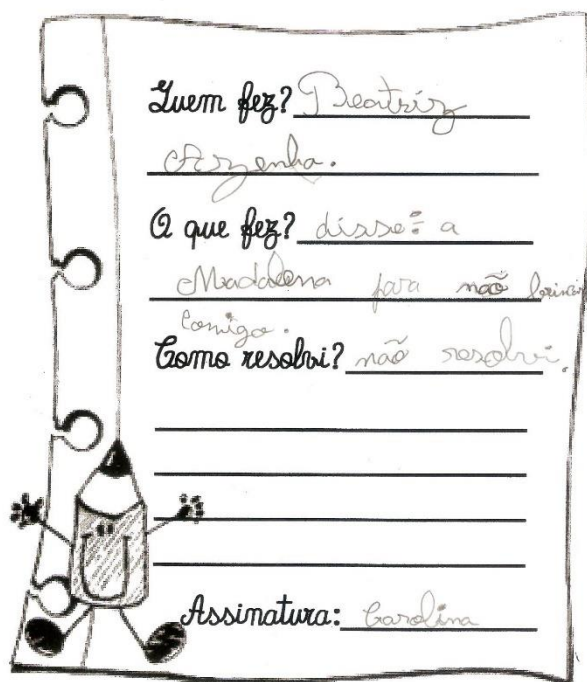 Quem fez? Beatriz
Azenha.
O que fez? disse: a
Madalena para não brincar
comigo.
Como resolvi? não resolvi.
Assinatura: Carolina